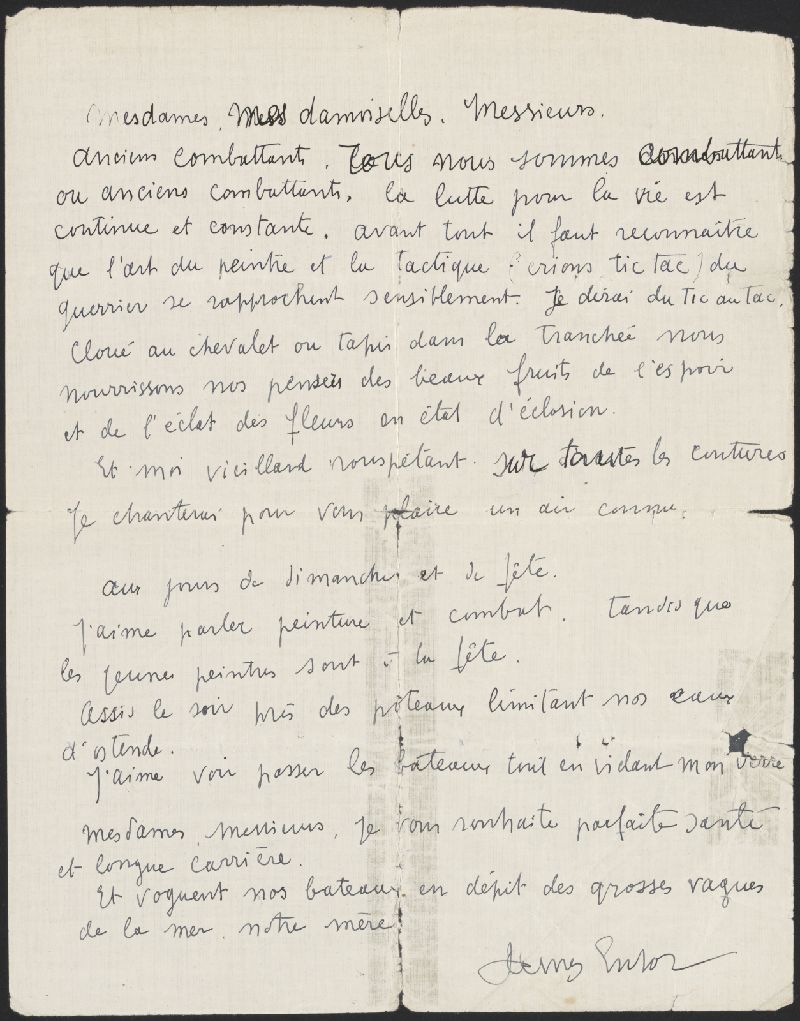 Mesdames, Mess damoiselles. Messieurs.
anciens combattants. Tous nous sommes combattants
ou anciens combattants. la lutte pour la vie est
continue et constante. avant tout il faut reconnaître
que l'art du peintre et la tactique (crions, tic tac) du
guerrier se rapprochent sensiblement. Je dirai du Tic au Tac.
Cloué au chevalet ou tapis dans la tranchée nous
nourrissons nos pensées des beaux fruits de l'espoir
et de l'éclat des fleurs en état d'éclosion.
Et moi vieillard rouspétant sur toutes les coutures
Je chanterai pour vous plaire un air connu.
aux jours de dimanches et de fête.
J'aime parler peinture et combat. Tandis que
les jeunes peintres sont à la fête.
Assis le soir près des pôteaux limitant nos eaux
d'ostende.
J'aime voir passer les bateaux tout en vidant mon verre
Mesdames, Messieurs, Je vous souhaite parfaite santé
et longue carrière.
Et voguent nos bateaux en dépit des grosses vagues
de la mer, notre mère
James Ensor